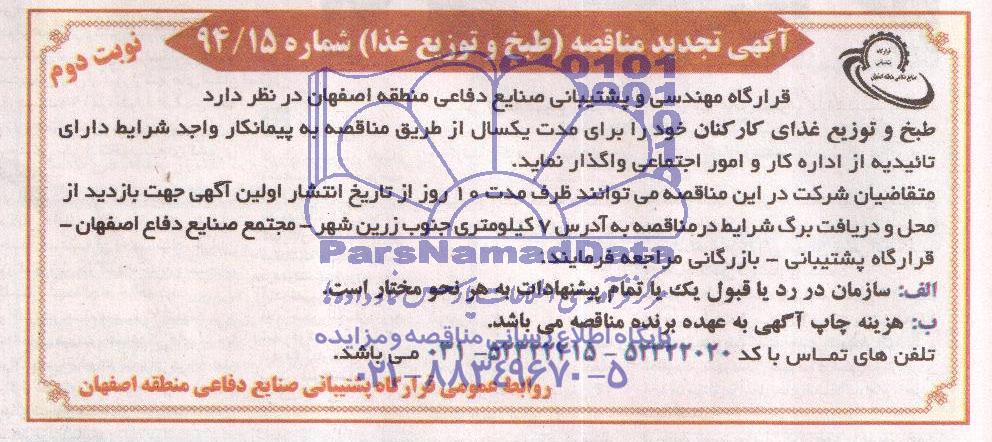 آگهی تجدید مناقصه (طبخ و توزیع غذا) شماره ۹۴/۱۵
نوبت دوم
قرارگاه مهندسی و پشتیبانی صنایع دفاعی منطقه اصفهان در نظر دارد
طبخ و توزیع غذای کارکنان خود را برای مدت یکسال از طریق مناقصه به پیمانکار واجد شرایط دارای
تائیدیه از اداره کار و امور اجتماعی واگذار نماید.
متقاضیان شرکت در این مناقصه می توانند ظرف مدت ۱۰ روز از تاریخ انتشار اولین آگهی جهت بازدید از
محل و دریافت برگ شرایط درمناقصه به آدرس ۷ کیلومتری جنوب زرین شهر – مجتمع صنایع دفاع اصفهان –
قرارگاه پشتیبانی – بازرگانی مراجعه فرمایند.
ParsNamadData
الف: سازمان در رد یا قبول یک یا تمام پیشنهادات به هر نحو مختار است.
ب: هزینه چاپ آگهی به عهده برنده مناقصه می باشد.
پایگاه اطلاع رسانی مناقصه و مزایده
تلفن های تماس با کد ۵۲۲۲۲۰۲۰ – ۵۲۲۲۲۴۱۵ – ۰۳۱ می باشد.
۰۲۱-۸۸۳۴۹۶۷۰-۵
روابط عمومی قرارگاه پشتیبانی صنایع دفاعی منطقه اصفهان